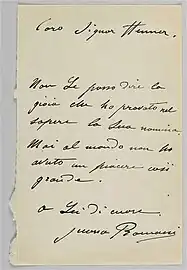 Caro Signor Henner,
Non Le posso dire la
gioia che ho provato nel
sapere la Sua nomina.
Mai al mondo non ho
avuto un piacere così
grande.
a Lei di cuore
Juana Romani